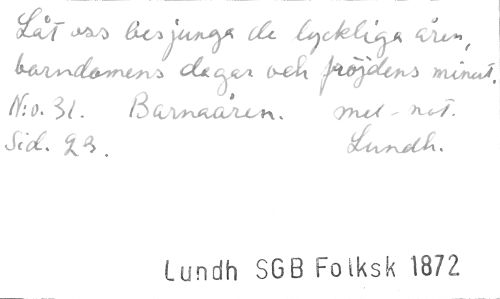 Låt oss besjunga de lyckliga åren,
barndomens dagar och fröjdens minut.
N:o. 31. Barnaåren. mel-not.
Sid. 23. Lundh.
Lundh SGB Folksk 1872